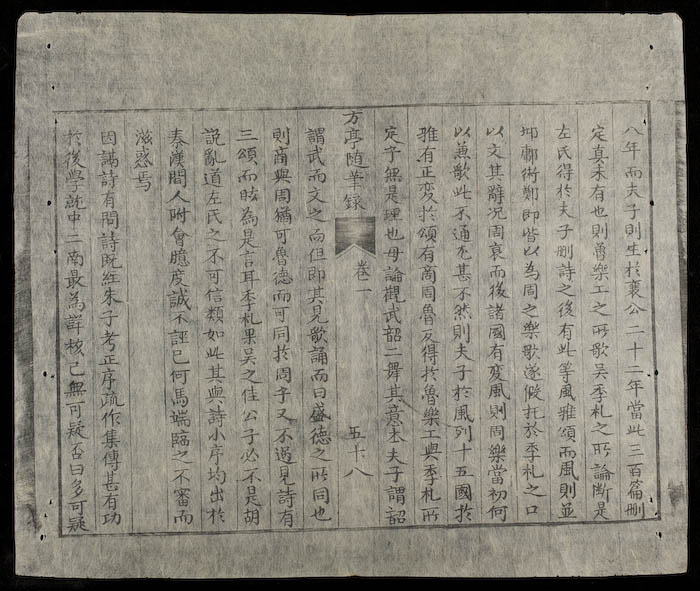 八年而夫子則生於襄公二十二年當此三百篇刪
定真未有也則魯樂工之所歌吳季札之所論斷是
左氏得於夫子刪詩之後有此等風雅頌而風則並
邶鄘衛鄭即皆以為周之樂歌遂假托於季札之口
以文其辭况周衰而後諸國有变風則周樂當初何
以兼歌此不通尤甚不然則夫子於風列十五國於
雅有正変於頌有商周魯反得於魯樂工與季札所
定乎無是理也毋論觀武韶二舞其意本夫子謂韶
方亭随筆錄
卷二
五十八
謂武而文之而但即其見歌誦而曰盛德之所同也
則商與周猶可魯德而可同於周乎又不過見詩有
三頌而眩為是言耳季札果吳之佳公子必不是胡
說亂道左氏之不可信類如此其與詩小序均出於
秦漢間人附會臆度誠不誣已何馬端臨之不審而
滋惑焉
因論詩有問詩既經朱子考正序疏作集傳甚有功
於後學就中二南最為詳核已無可疑否曰多可疑